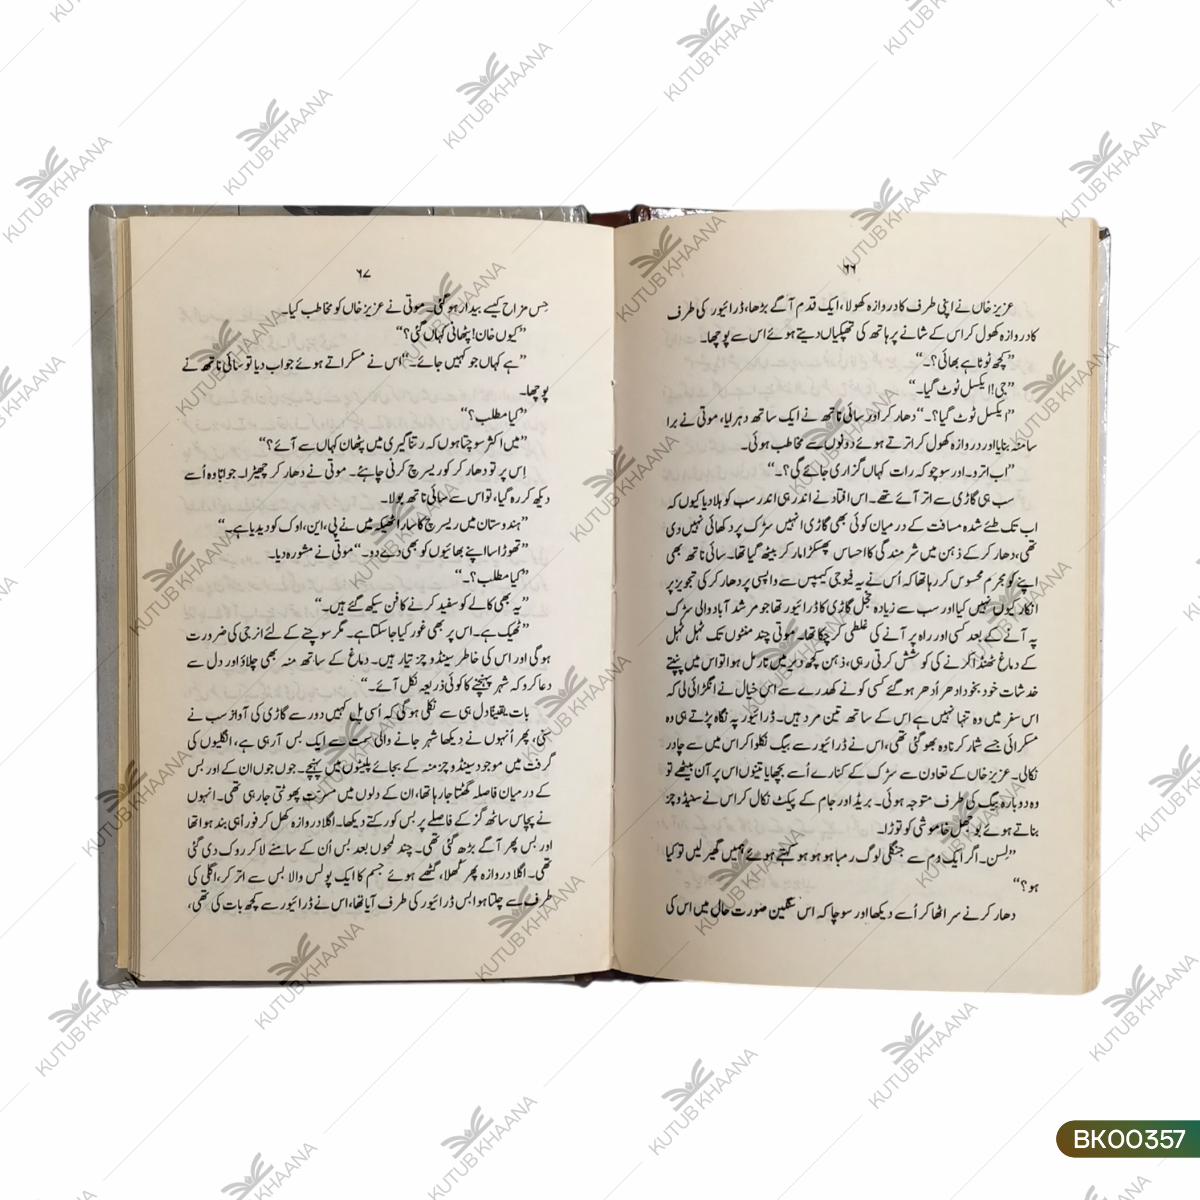 ۶۶
عزیز خاں نے اپنی طرف کا دروازہ کھولا، ایک قدم آگے بڑھا، ڈرائیور کی طرف
کا دروازہ کھول کر اس کے شانے پر ہاتھ کی تھپکیاں دیتے ہوئے اس سے پوچھا۔
”کچھ ٹوٹا ہے بھائی؟۔“
”جی! ایکسل ٹوٹ گیا۔“
”ایکسل ٹوٹ گیا؟۔“ دھار کر اور سائی ناتھ نے ایک ساتھ دہرایا، موتی نے برا
سا منہ بنایا اور دروازہ کھول کر اترتے ہوئے دونوں سے مخاطب ہوئی۔
”اب اترو۔ اور سوچو کہ رات کہاں گزاری جائے گی؟۔“
سب ہی گاڑی سے اتر آئے تھے۔ اس افتاد نے اندر ہی اندر سب کو ہلا دیا کیوں کہ
اب تک طئے شدہ مسافت کے درمیان کوئی بھی گاڑی انہیں سڑک پر دکھائی نہیں دی
تھی، دھار کر کے ذہن میں شرمندگی کا احساس پھسکڑا مار کر بیٹھ گیا تھا۔ سائی ناتھ بھی
اپنے کو مجرم محسوس کر رہا تھا کہ اُس نے یہ فیوجی کیمپس سے واپسی پر دھار کر کی تجویز پر
انکار کیوں نہیں کیا اور سب سے زیادہ خجل گاڑی کا ڈرائیور تھا جو مرشد آباد والی سڑک
پہ آنے کے بعد کسی اور راہ پر آنے کی غلطی کر چکا تھا۔ موتی چند منٹوں تک ٹہل ٹہل
کے دماغ ٹھنڈا کرنے کی کوشش کرتی رہی، ذہن کچھ دیر میں نارمل ہوا تو اس میں پنپتے
خدشات خود بخود ادھر اُدھر ہو گئے کسی کونے کھدرے سے اس خیال نے انگڑائی لی کہ
اس سفر میں وہ تنہا نہیں ہے اس کے ساتھ تین مرد ہیں۔ ڈرائیور پہ نگاہ پڑتے ہی وہ
مسکرائی جسے شمار کرنا وہ بھول گئی تھی، اس نے ڈرائیور سے بیگ نکلوا کر اس میں سے چادر
نکالی۔ عزیز خاں کے تعاون سے سڑک کے کنارے اُسے بچھایا تینوں اس پر آن بیٹھے تو
وہ دوبارہ بیگ کی طرف متوجہ ہوئی۔ بریڈ اور جام کے پیکٹ نکال کر اس نے سنیڈو چز
بناتے ہوئے بوجھل خاموشی کو توڑا۔
”لِسن۔ اگر ایک دم سے جنگلی لوگ رمبا ہو ہو ہو کہتے ہوئے ہمیں گھیر لیں تو کیا
ہو؟“
دھار کر نے سر اٹھا کر اُسے دیکھا اور سوچا کہ اس سنگین صورت حال میں اس کی
۶۷
حِس مزاح کیسے بیدار ہو گئی۔ موتی نے عزیز خاں کو مخاطب کیا۔
”کیوں خان! پٹھانی کہاں گئی؟“
”ہے کہاں جو کہیں جائے۔“ اس نے مسکراتے ہوئے جواب دیا تو سائی ناتھ نے
پوچھا۔
”کیا مطلب؟“
”میں اکثر سوچتا ہوں کہ رتنا گیری میں پٹھان کہاں سے آئے؟“
اِس پر تو دھار کر کو ریسرچ کرنی چاہئے۔ موتی نے دھار کر چھیڑا۔ جواباً وہ اُسے
دیکھ کر رہ گیا، تو اس سے سائی ناتھ بولا۔
”ہندوستان میں ریسرچ کا سارا ٹھیکہ میں نے پی، این، اوک کو دیدیا ہے۔“
”تھوڑا سا اپنے بھائیوں کو بھی دے دو۔“ موتی نے مشورہ دیا۔
”کیا مطلب؟۔“
”یہ بھی کالے کو سفید کرنے کا فن سیکھ گئے ہیں۔“
”ٹھیک ہے۔ اس پر بھی غور کیا جا سکتا ہے۔ مگر سوچنے کے لئے انرجی کی ضرورت
ہو گی اور اس کی خاطر سینڈو چز تیار ہیں۔ دماغ کے ساتھ منہ بھی چلاؤ اور دل سے
دعا کرو کہ شہر پہنچنے کا کوئی ذریعہ نکل آئے۔“
بات یقیناً دل ہی سے نکلی ہو گی کہ اُسی پل کہیں دور سے گاڑی کی آواز سب نے
سنی، پھر اُنہوں نے دیکھا شہر جانے والی سمت سے ایک بس آ رہی ہے، انگلیوں کی
گرفت میں موجود سینڈو چز منہ کے بجائے پلیٹوں میں پہنچے۔ جوں جوں ان کے اور بس
کے درمیان فاصلہ گھٹتا جا رہا تھا، ان کے دلوں میں مسرت پھوٹتی جا رہی تھی۔ انہوں
نے پچاس ساٹھ گز کے فاصلے پر بس کو رکتے دیکھا۔ اگلا دروازہ کھل کر فوراً ہی بند ہوا تھا
اور بس پھر آگے بڑھ گئی تھی۔ چند لمحوں بعد بس اُن کے سامنے لا کر روک دی گئی
تھی۔ اگلا دروازہ پھر کُھلا، گٹھے ہوئے جسم کا ایک پولس والا بس سے اتر کر، اگلی کی
طرف سے چلتا ہوا بس ڈرائیور کی طرف آیا تھا، اس نے ڈرائیور سے کچھ بات کی تھی،
BK00357
KUTUB KHAANA